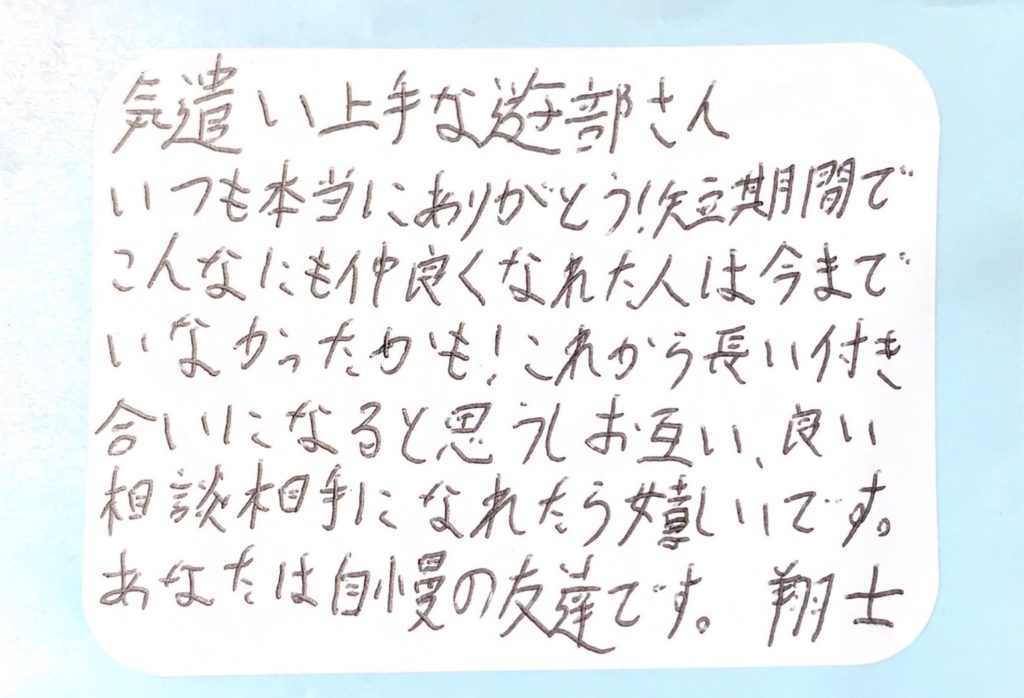 気遣い上手な遊部さん
いつも本当にありがとう!短期間で
こんなにも仲良くなれた人は今まで
いなかったかも!これから長い付き
合いになると思うしお互い、良い
相談相手になれたら嬉しいです。
あなたは自慢の友達です。 翔士